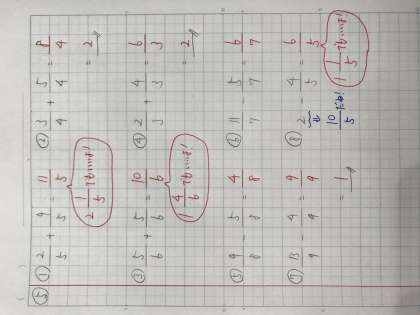 ⑤ ① 2/5 + 9/5 = 11/5
2 1/5 でもいいよ!
② 3/4 + 5/4 = 8/4
= 2
③ 5/6 + 5/6 = 10/6
1 4/6 でもいいよ!
④ 2/3 + 4/3 = 6/3
= 2
⑤ 9/8 - 5/8 = 4/8
⑥ 11/7 - 5/7 = 6/7
⑦ 13/9 - 4/9 = 9/9
= 1
⑧ 2 - 4/5 = 6/5
10/5
1 1/5 でもいいよ!